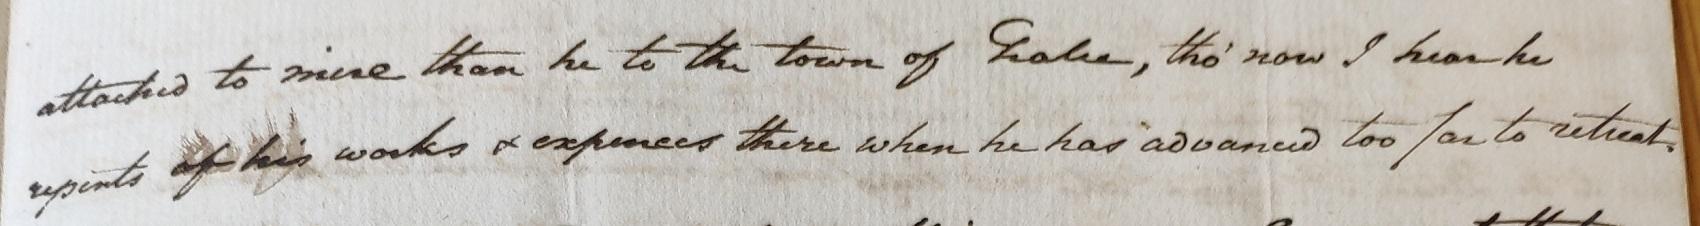 attached to mine than he to the town of Tralee, tho' now I hear he
repents of his works & expences there when he has advanced too far to retreat.